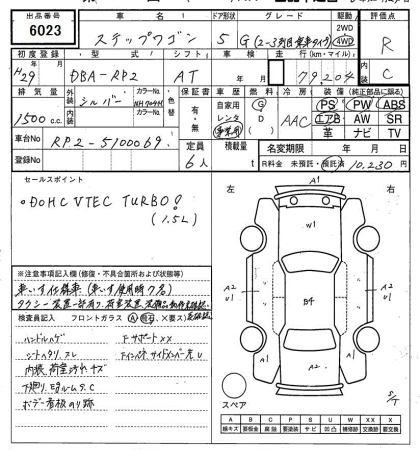 出品番号 車名 ドア形状 グレード 駆動 評価点
6023 ステップワゴン 5 G (2-3列目乗車タイプ) 2WD 4WD R
初度登録 型式 シフト 車検 走行(km・マイル)
H29 DBA-RP2 AT 79,204 C
排気量 外装 カラーNo. 色替 保証書 車歴 燃料 冷房 装備(純正部品に限る)
1500 c.c. シルバー NH704M 有・無 自家用 レンタ 事業用 G D AAC PS PW ABS
エアB AW SR
革 ナビ TV
内装 カラーNo.
車台No RP2-5100069 定員 積載量 名変期限 年 月 日
登録No 6人 t R料金 未預託・預託済 10,230円
セールスポイント
・DOHC VTEC TURBO!
(1.5L)
左 右
A1
W1
A2 U1
B4
A2 U1
A2
A1
スペア
※注意事項記入欄(修復・不具合箇所および状態等)
車いす仕様車(車いす使用時7名)
検査員記入 フロントガラス (A 飛石、X要ス)
ハンドルハゲ
シートヘタリ、スレ
内張、荷室汚れキズ
下廻り、Egルーム S、C
ボデー看板のり跡
FサポートXX
Fインナー、サイドメンバー先U
A B C P S U W X XX
線キズ 要板金 腐蝕 要塗装 サビ 凹凸 補修跡 要交換 交換跡